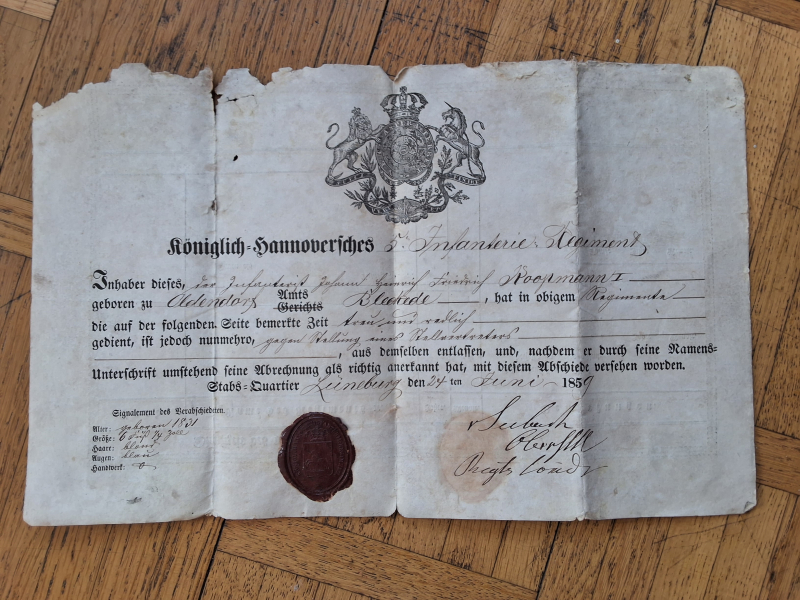 Königlich-Hannoversches 5tes Infanterie-Regiment
Inhaber dieses, der Infanterist Johann Heinrich Friedrich Koopmann I
geboren zu Adendorf Amts Gerichts Bleckede, hat in obigem Regimente
die auf der folgenden Seite bemerkte Zeit treu und redlich
gedient, ist jedoch nunmehro, gegen Stellung eines Stellvertreters
, aus demselben entlassen, und, nachdem er durch seine Namens-
Unterschrift umstehend seine Abrechnung als richtig anerkannt hat, mit diesem Abschiede versehen worden.
Stabs-Quartier Lüneburg den 24ten Juni 1859
Signalement des Verabschiedeten.
Alter: geboren 1831
Größe: 6 Fuß Zoll
Haare: blond
Augen: blau
Handwerk:
Oberstlt
Regts Comdr